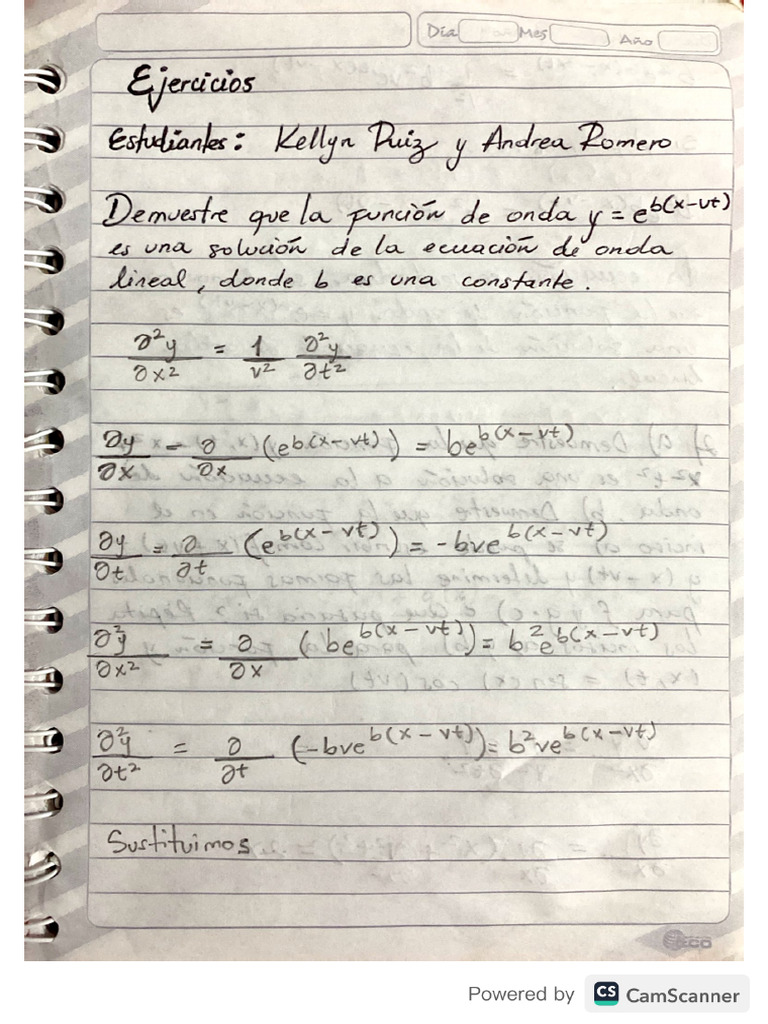 Día Mes Año
Ejercicios
Estudiantes: Kellyn Ruiz y Andrea Romero
Demuestre que la función de onda y = e^{b(x-vt)}
es una solución de la ecuación de onda
lineal, donde b es una constante.
∂²y/∂x² = 1/v² ∂²y/∂t²
∂y/∂x = ∂/∂x (e^{b(x-vt)}) = be^{b(x-vt)}
∂y/∂t = ∂/∂t (e^{b(x-vt)}) = -bve^{b(x-vt)}
∂²y/∂x² = ∂/∂x (be^{b(x-vt)}) = b²e^{b(x-vt)}
∂²y/∂t² = ∂/∂t (-bve^{b(x-vt)}) = b²ve^{b(x-vt)}
Sustituimos
eco
Powered by CS CamScanner